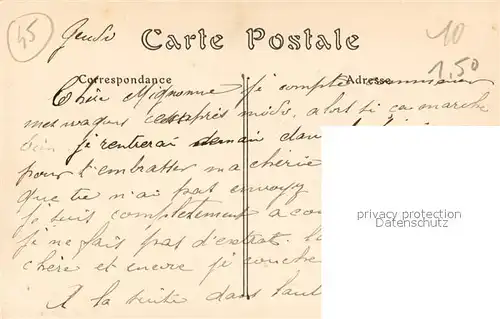 45
Jeudi
10
1,50
Carte Postale
Correspondance
Adresse
Chère Mignonne je compte
mes wagons après midi, alors si ça marche
bien je rentrerai demain dans
pour t'embrasser ma chérie
que tu n'ai pas envoyé
je suis complètement a cou
je ne fais pas d'extrat.
chère et encore je couche
A la suite dans l'aut
privacy protection
Datenschutz